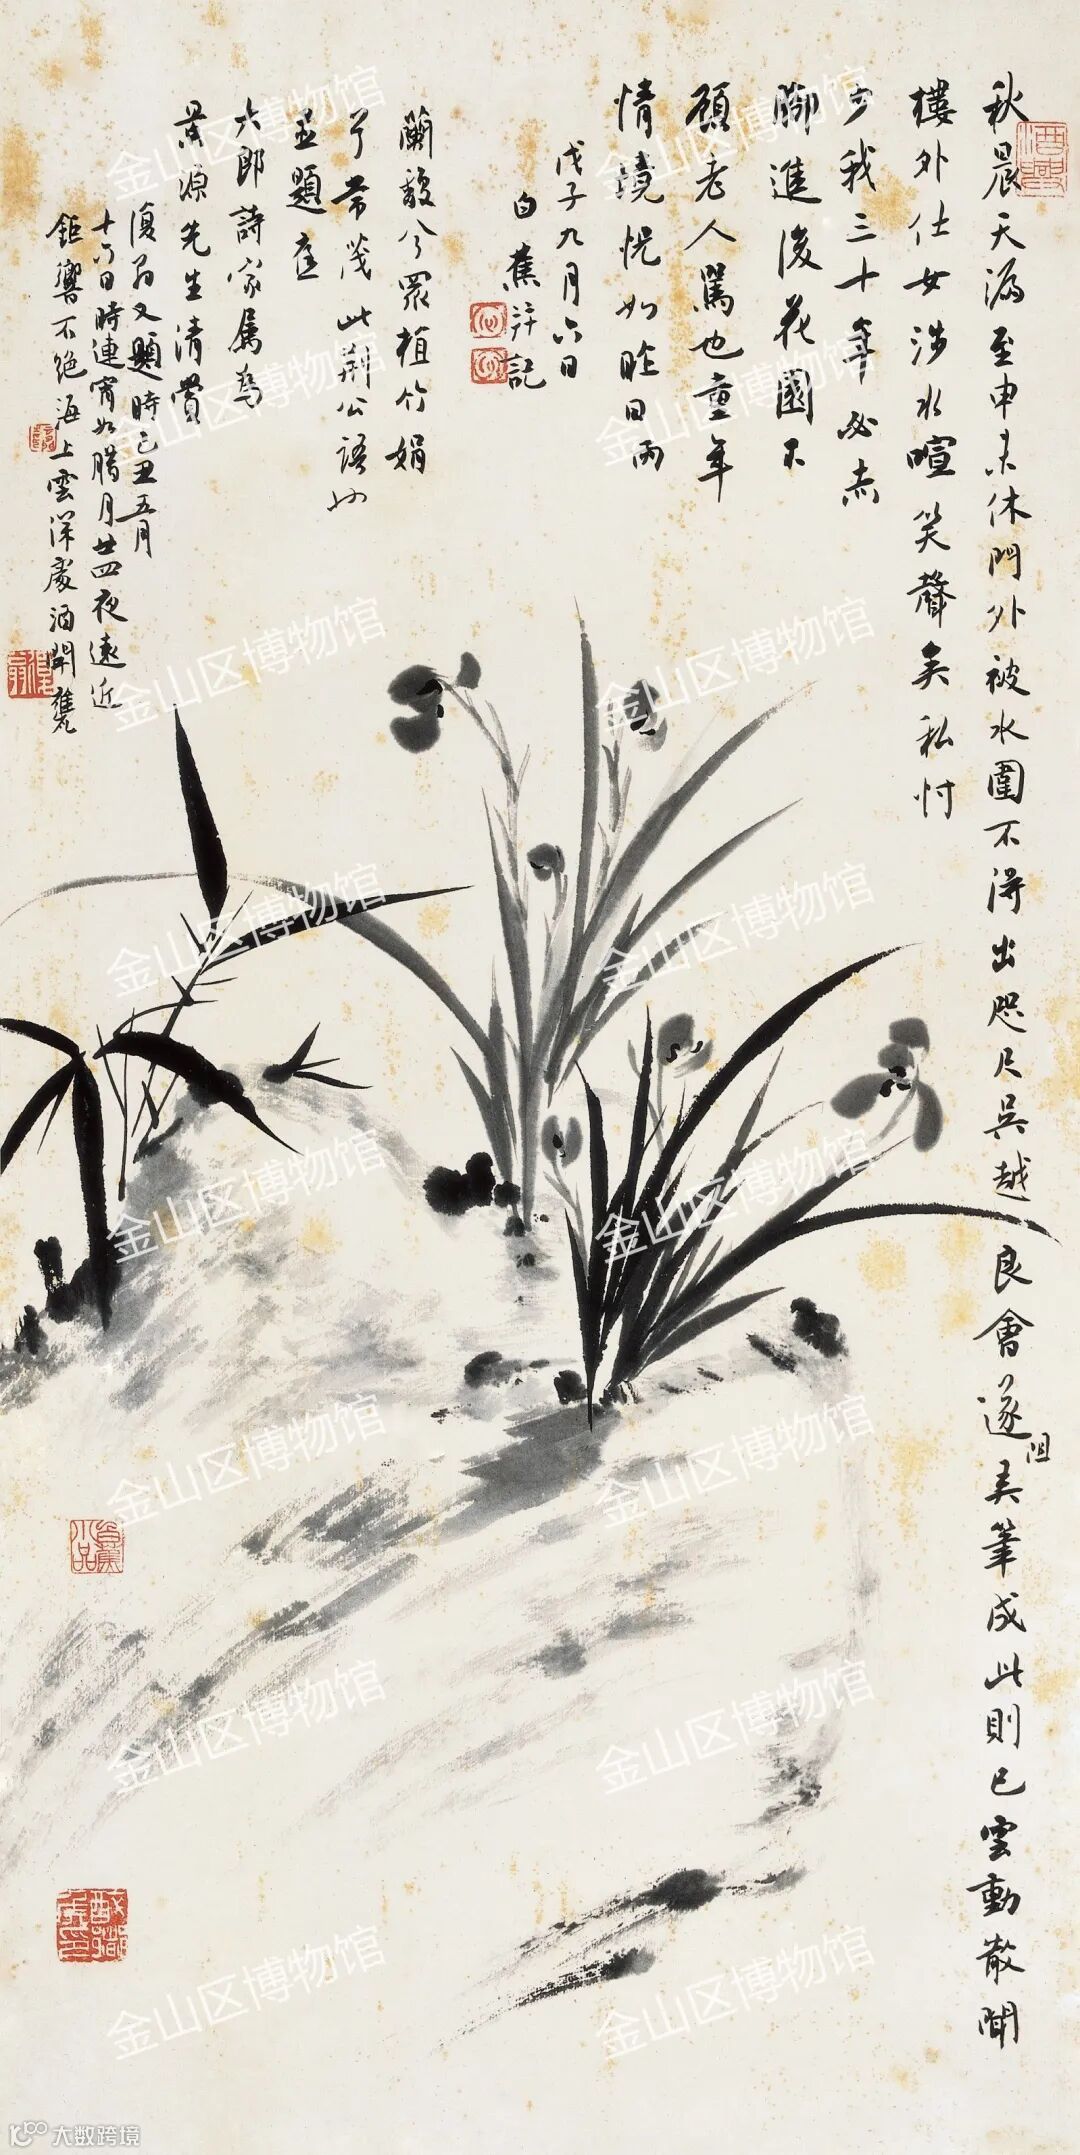 秋晨天漏至申未休門外被水圍不得出咫尺吳越良會遂阻矣筆成此則已雲動散聞
樓外仕女涉水喧笑聲矣私忖
少我三十年必赤
腳進後花園不
顧老人罵也童年
情境怳如昨日兩
戊子九月六日
白蕉并記
蘭馥兮眾植竹娟
兮常茂此荊公語也
並題應
六郎詩家屬為
先生清賞
復翁又題時己丑五月
十六日時連宵如臘月廿四夜遠近
鉅響不絕海上雲洋處酒開甕
金山区博物馆
大数跨境